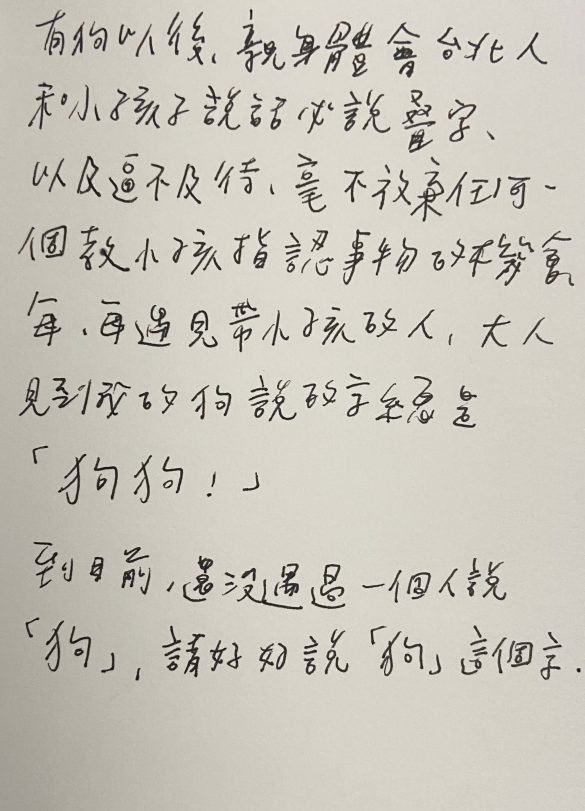 有狗以後、親身體會台北人
和小孩子說話必說疊字、
以及逼不及待、毫不放棄任何一
個教小孩指認事物的機會,
每、每遇見帶小孩的人, 大人
見到我的狗說的字總是
「狗狗！」
到目前, 還沒遇過一個人說
「狗」, 請好好說「狗」這個字.